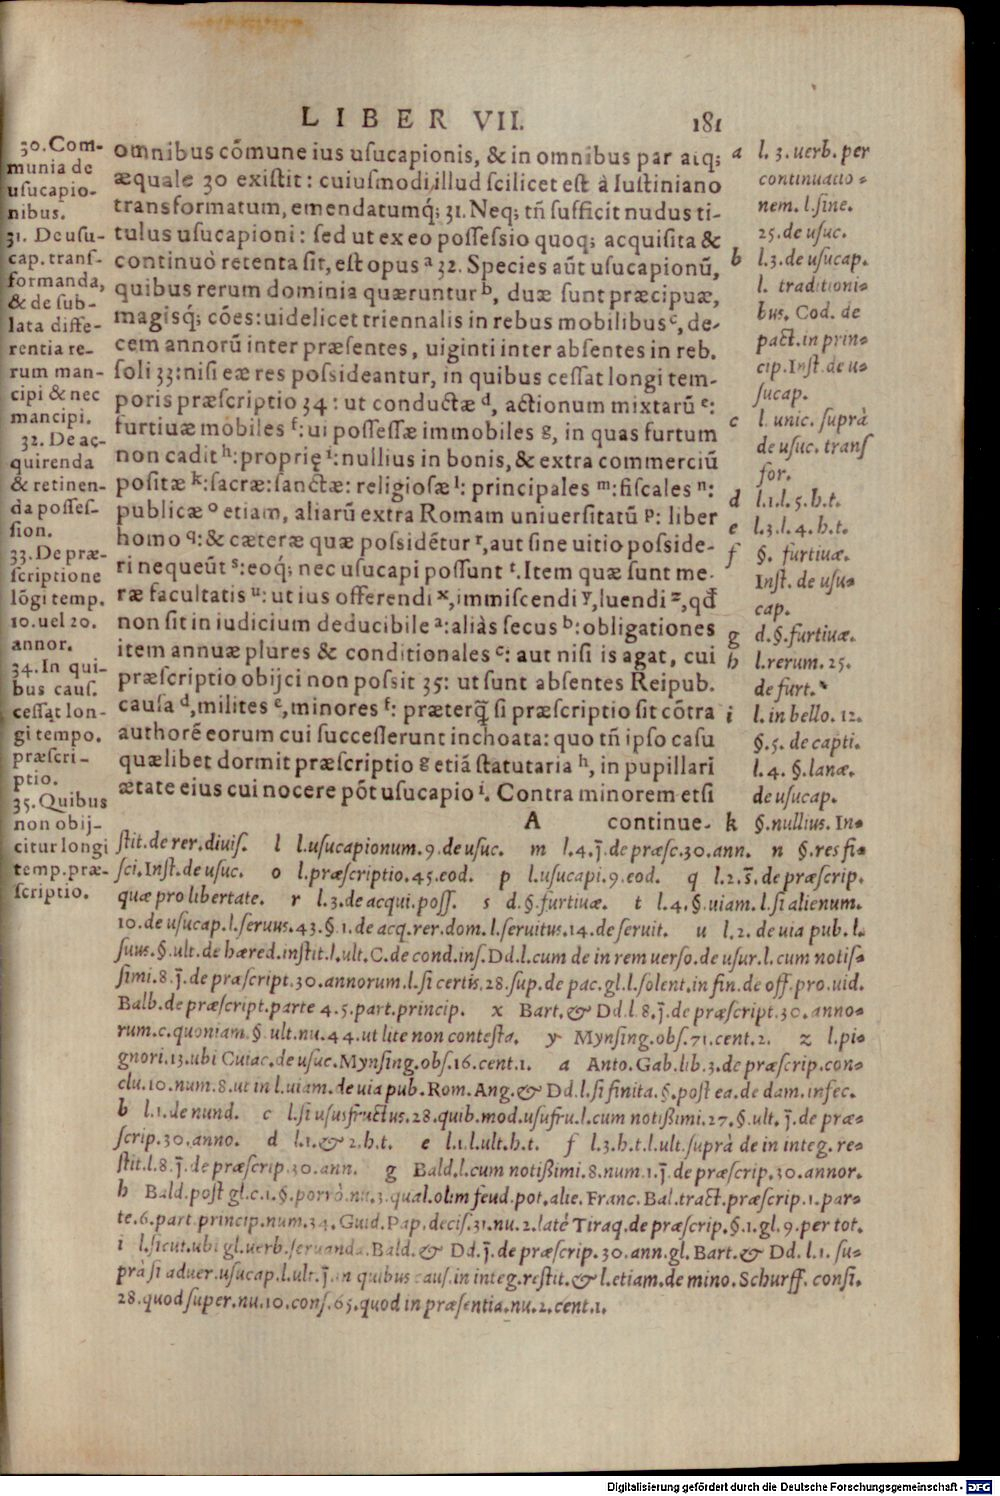 LIBER VII. 181
30. Com-
munia de
uſucapio-
nibus.
31. De uſu-
cap. tranſ-
formanda,
& de ſub-
lata diffe-
rentia re-
rum man-
cipi & nec
mancipi.
32. De ac-
quirenda
& retinen-
da poſſeſ-
ſion.
33. De præ-
ſcriptione
lõgi temp.
10. uel 20.
annor.
34. In qui-
bus cauſ.
ceſſat lon-
gi tempo.
præſcri-
ptio.
35. Quibus
non obij-
citur longi
temp. præ-
ſcriptio.
omnibus cõmune ius uſucapionis, & in omnibus par atq;
æquale 30 exiſtit: cuiuſmodi illud ſcilicet eſt à Iuſtiniano
transformatum, emendatumq́; 31. Neq; tñ ſufficit nudus ti-
tulus uſucapioni: ſed ut ex eo poſſeſsio quoq; acquiſita &
continuò retenta ſit, eſt opus a 32. Species aũt uſucapionũ,
quibus rerum dominia quæruntur b, duæ ſunt præcipuæ,
magisq́; cões: uidelicet triennalis in rebus mobilibus c, de-
cem annorũ inter præſentes, uiginti inter abſentes in reb.
ſoli 33: niſi eæ res poſsideantur, in quibus ceſſat longi tem-
poris præſcriptio 34: ut conductæ d, actionum mixtarũ e:
furtiuæ mobiles f: ui poſſeſſæ immobiles g, in quas furtum
non cadit h: proprię i: nullius in bonis, & extra commerciũ
poſitæ k: ſacræ: ſanctæ: religioſæ l: principales m: fiſcales n:
publicæ o etiam, aliarũ extra Romam uniuerſitatũ p: liber
homo q: & cæteræ quæ poſsidẽtur r, aut ſine uitio poſside-
ri nequeũt s: eoq́; nec uſucapi poſſunt t. Item quæ ſunt me-
ræ facultatis u: ut ius offerendi x, immiſcendi y, luendi z, qđ
non ſit in iudicium deducibile a: aliàs ſecus b: obligationes
item annuæ plures & conditionales c: aut niſi is agat, cui
præſcriptio obijci non poſsit 35: ut ſunt abſentes Reipub.
cauſa d, milites e, minores f: præterq̃ ſi præſcriptio ſit cõtra
authorẽ eorum cui ſucceſſerunt inchoata: quo tñ ipſo caſu
quælibet dormit præſcriptio g etiã ſtatutaria h, in pupillari
ætate eius cui nocere põt uſucapio i. Contra minorem etſi
A continue-
a l. 3. uerb. per
continuatio-
nem. l. ſine.
25. de uſuc.
b l. 3. de uſucap.
l. traditioni-
bus. Cod. de
pact. in prin-
cip. Inſt. de u-
ſucap.
c l. unic. ſuprà
de uſuc. transſ
for.
d l. 1. l. 5. h. t.
e l. 3. l. 4. h. t.
f §. furtiuæ.
Inſt. de uſu-
cap.
g d. §. furtiuæ.
h l. rerum. 25.
de furt.
i l. in bello. 12.
§. 5. de capti.
l. 4. §. lanæ.
de uſucap.
k §. nullius. In-
ſtit. de rer. diuiſ. l l. uſucapionum. 9. de uſuc. m l. 4. j̃. de præſc. 30. ann. n §. res fi-
ſci. Inſt. de uſuc. o l. præſcriptio. 45. eod. p l. uſucapi. 9. eod. q l. 2. s̃. de præſcrip.
quæ pro libertate. r l. 3. de acqui. poſſ. s d. §. furtiuæ. t l. 4. §. uiam. l. ſi alienum.
10. de uſucap. l. ſeruus. 43. §. 1. de acq. rer. dom. l. ſeruitus. 14. de ſeruit. u l. 2. de uia pub. l.
ſuus. §. ult. de hæred. inſtit. l. ult. C. de cond. inſ. Dd. l. cum de in rem uerſo. de uſur. l. cum notiſ-
ſimi. 8. j̃. de præſcript. 30. annorum. l. ſi certis. 28. ſup. de pac. gl. l. ſolent. in fin. de off. pro. uid.
Balb. de præſcript. parte 4. 5. part. princip. x Bart. & Dd. l. 8. j̃. de præſcript. 30. anno-
rum. c. quoniam. §. ult. nu. 44. ut lite non conteſta. y Mynſing. obſ. 71. cent. 2. z l. pi-
gnori. 13. ubi Cuiac. de uſuc. Mynſing. obſ. 16. cent. 1. a Anto. Gab. lib. 3. de præſcrip. con-
clu. 10. num. 8. ut in l. uiam. de uia pub. Rom. Ang. & Dd. l. ſi finita. §. poſt ea. de dam. infec.
b l. 1. de nund. c l. ſi uſusfructus. 28. quib. mod. uſufru. l. cum notißimi. 27. §. ult. j̃. de præ-
ſcrip. 30. anno. d l. 1. & 2. h. t. e l. 1. l. ult. h. t. f l. 3. h. t. l. ult. ſuprà de in integ. re-
ſtit. l. 8. j̃. de præſcrip. 30. ann. g Bald. l. cum notißimi. 8. num. 1. j̃. de præſcrip. 30. annor.
h Bald. poſt gl. c. 1. §. porrò. nu. 3. qual. olim feud. pot. alie. Franc. Bal. tract. præſcrip. 1. par-
te. 6. part. princip. num. 34. Guid. Pap. deciſ. 31. nu. 2. latè Tiraq. de præſcrip. §. 1. gl. 9. per tot.
i l. ſicut. ubi gl. uerb. ſeruanda. Bald. & Dd. j̃. de præſcrip. 30. ann. gl. Bart. & Dd. l. 1. ſu-
prà ſi aduer. uſucap. l. ult. j̃. in quibus cauſ. in integ. reſtit. & l. etiam. de mino. Schurff. conſi.
28. quod ſuper. nu. 10. conſ. 65. quod in præſentia. nu. 2. cent. 1.
Digitalisierung gefördert durch die Deutsche Forschungsgemeinschaft - DFG